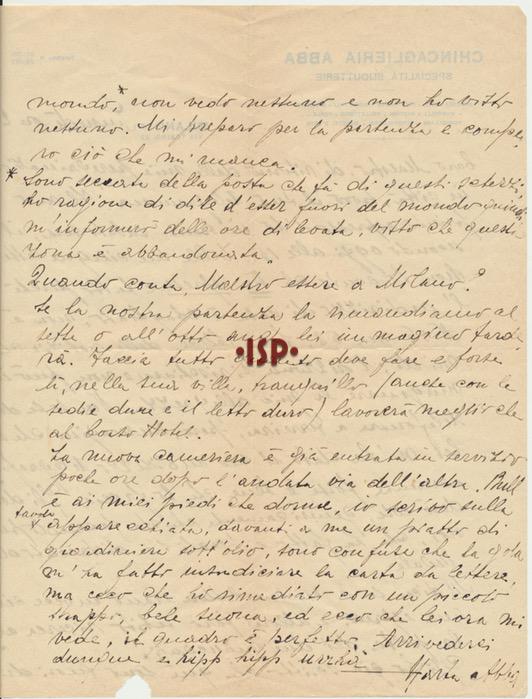 CHINCAGLIERIA ABBA
SPECIALITÀ BIJOUTTERIE
mondo,* non vedo nessuno e non ho visto
nessuno. Mi preparo per la partenza e comp
ro ciò che mi manca.
* Sono seccata della posta che fa di questi scherzi
ho ragione di dire d'esser fuori del mondo
m'informerò delle ore di levata, visto che questa
zona è abbandonata.
Quando conta, Maestro essere a Milano?
Se la nostra partenza la rimandiamo al
sette o all'otto anche lei immagino tarde
rà. Faccia tutto quanto deve fare e forse
lì, nella sua villa, tranquillo (anche con le
sedie dure e il letto duro) lavorerà meglio che
al Corso Hotel.
La nuova cameriera è già entrata in servizio
poche ore dopo l'andata via dell'altra. Bull
è ai miei piedi che dorme, io scrivo sulla
tavola
apparecchiata, davanti a me un piatto di
giardiniera sott'olio, sono confusa che la gola
m'ha fatto insudiciare la carta da lettere,
ma ecco che ho rimediato con un piccolo
strappo, Cele suona, ed ecco che lei ora mi
vede, il quadro è perfetto. Arrivederci
dunque e hipp hipp urrhà
Marta Abba
·ISP·